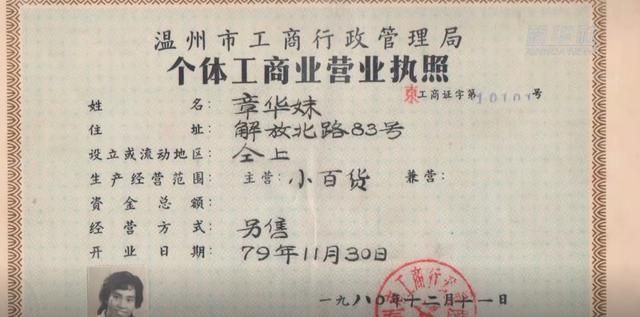 新华社
温州市工商行政管理局
个体工商业营业执照
东工商证字第10101号
姓名：章华妹
住址：解放北路83号
设立或流动地区：仝上
生产经营范围：主营：小百货 兼营：
资金总额：
经营方式：另售
开业日期：79年11月30日
工商行政
一九八〇年十二月十一日